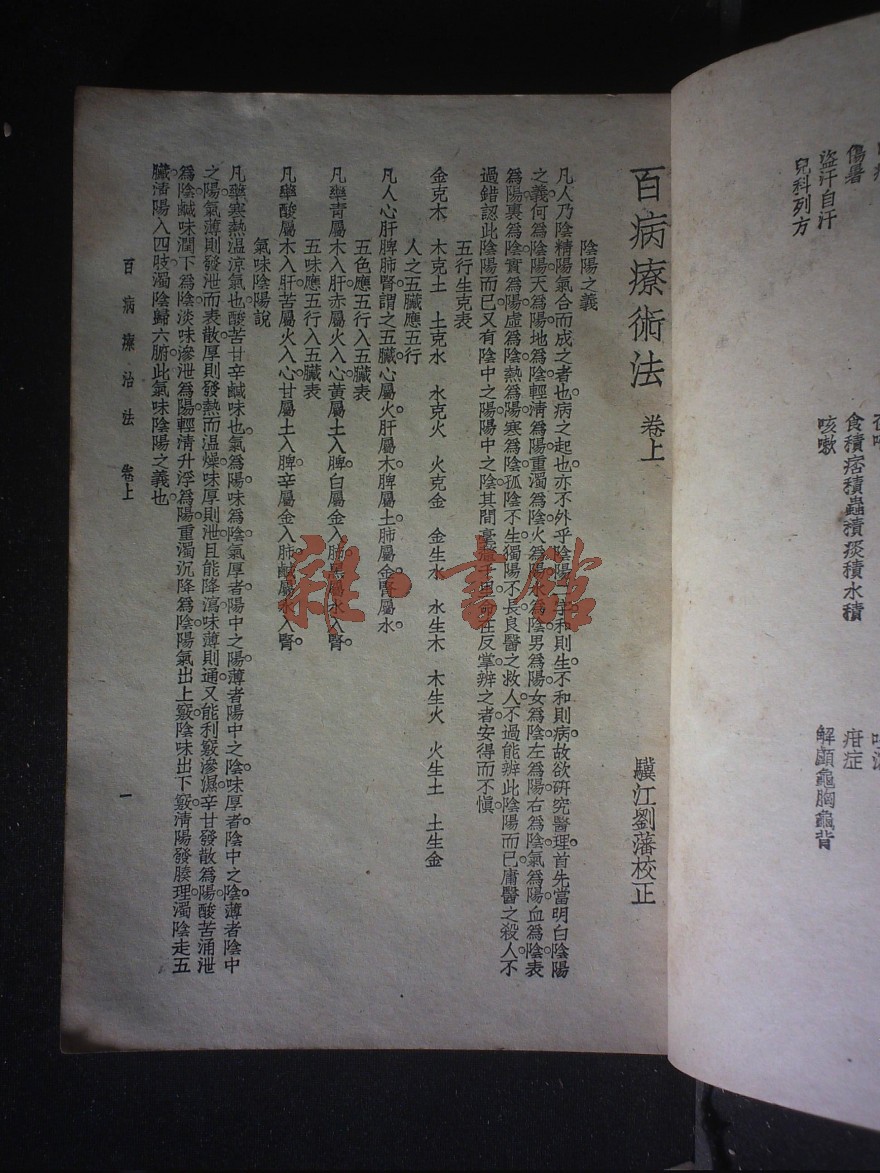 傷暑
盜汗自汗
兒科列方
食積痞積蟲積痰積水積
咳嗽
疳症
解顱龜胸龜背
百病療術法 卷上 驥江劉藩校正
陰陽之義
凡人乃陰精陽氣合而成之者也病之起也亦不外乎陰陽二字和則生不和則病故欲研究醫理首先當明白陰陽
之義何為陰陽天為陽地為陰輕清為陽重濁為陰火為陽水為陰男為陽女為陰左為陽右為陰氣為陽血為陰表
為陽裏為陰實為陽虛為陰熱為陽寒為陰孤陰不生獨陽不長良醫之救人不過能辨此陰陽而已庸醫之殺人不
過錯認此陰陽而已又有陰中之陽陽中之陰其間毫千里命在反掌辨之者安得而不愼
五行生克表
金克木 木克土 土克水 水克火 火克金 金生水 水生木 木生火 火生土 土生金
人之五臟應五行
凡人心肝脾肺腎謂之五臟心屬火肝屬木脾屬土肺屬金腎屬水
五色應五行入五臟表
凡藥青屬木入肝赤屬火入心黃屬土入脾白屬金入肺黑屬水入腎
五味應五行入五臟表
凡藥酸屬木入肝苦屬火入心甘屬土入脾辛屬金入肺鹹屬水入腎
氣味陰陽說
凡藥寒熱溫涼氣也酸苦甘辛鹹味也氣為陽味為陰氣厚者陽中之陽薄者陽中之陰味厚者陰中之陰薄者陰中
之陽氣薄則發泄而表散厚則發熱而溫燥味厚則泄且能降瀉味薄則通又能利竅滲濕辛甘發散為陽酸苦涌泄
為陰鹹味潤下為陰淡味滲泄為陽輕清升浮為陽重濁沉降為陰陽氣出上竅陰味出下竅清陽發腠理濁陰走五
臟清陽入四肢濁陰歸六腑此氣味陰陽之義也
百病療治法 卷上 一
雜·書館